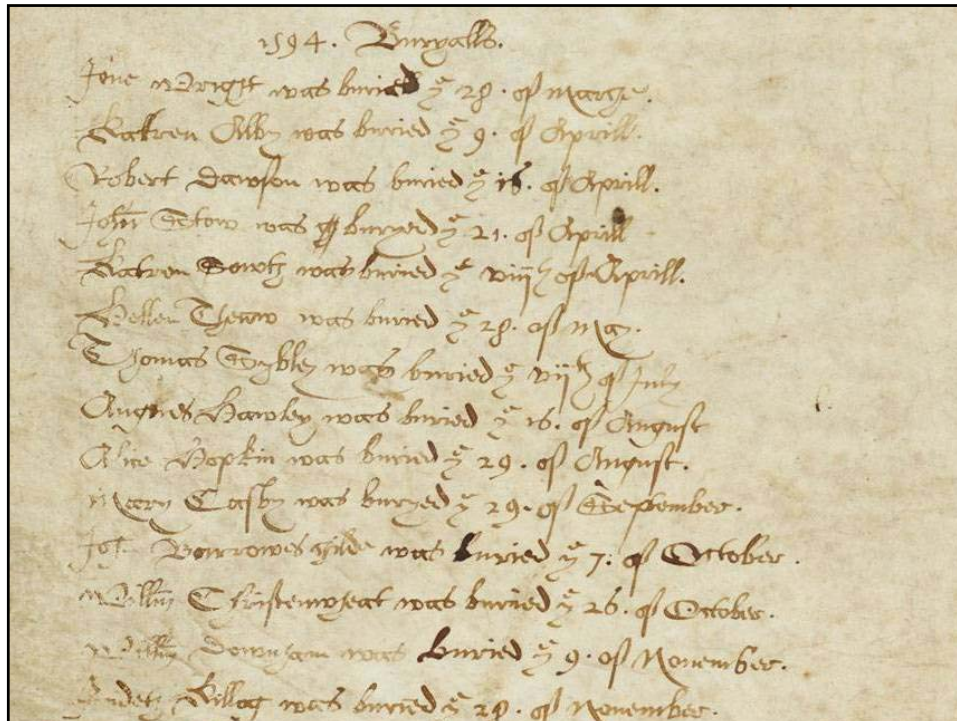 1594. Buryalls.
Jone Wright was buried yͤ 28. of Marche.
Katren Alby was buried yͤ 9. of Aprill.
Robert Dawson was buried yͤ 16. of Aprill.
John Stow was buryed yͤ 21. of Aprill
Katren was buried yͤ viijth of Aprill.
Hellen was buried yͤ 28. of May.
Thomas was buried yͤ vijth of July
Augnes Hawley was buried yͤ 16. of August
Alice Hopkin was buried yͤ 29. of August.
Mary Casby was buryed yͤ 29. of September.
Burrowes childe was buried yͤ 7. of October.
Willm Christenwheat was buried yͤ 26. of October.
Willm Downham was buried yͤ 9. of November.
was buried yͤ 28. of November.